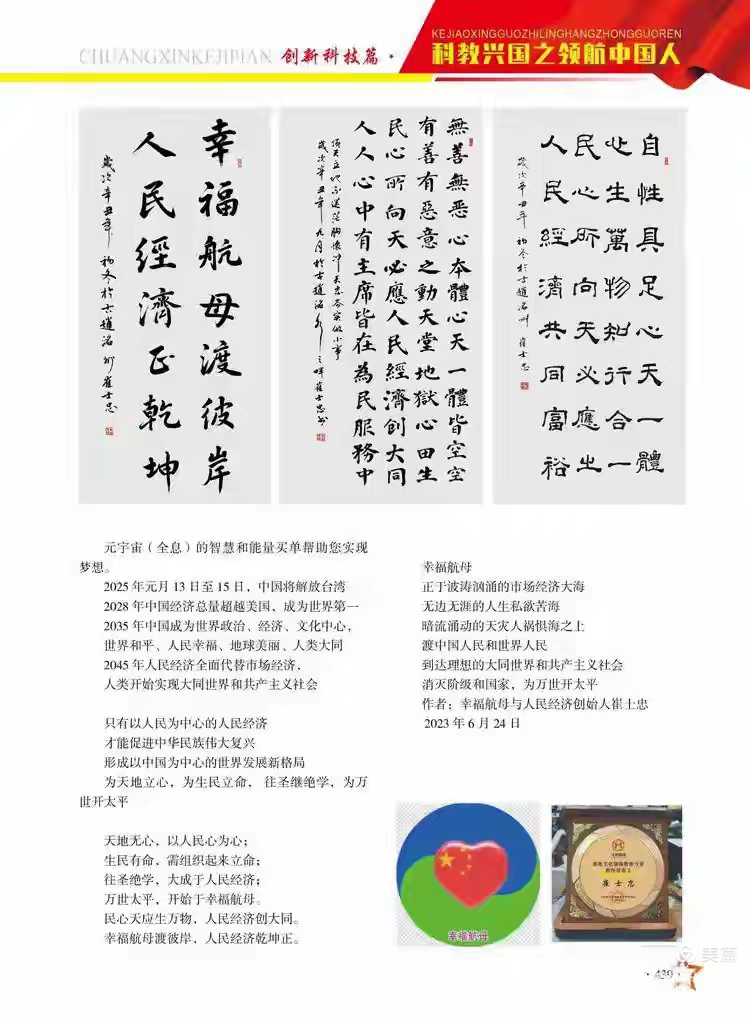 KEJIAOXINGGUOZHILINGHANGZHONGGUOREN
CHUANGXINKEJIPIAN 创新科技篇·
科教兴国之领航中国人
幸福航母渡彼岸
人民經濟正乾坤
歲次辛丑年 初冬於古趙洺州崔士忠
無善無恶心本體心天一體皆空空
有善有惡意之動天堂地獄心田生
民心所向天必應人民經濟创大同
人人心中有主席皆在為民服務中
歲次辛丑年九月於古趙洺
崔士忠书
自性具足心天一體
心生萬物知行合一
民心所向天必應之
人民經濟共同富裕
歲次辛丑年 初冬於古趙洺州 崔士忠
元宇宙（全息）的智慧和能量买单帮助您实现
梦想。
2025 年元月 13 日至 15 日，中国将解放台湾
2028 年中国经济总量超越美国，成为世界第一
2035 年中国成为世界政治、经济、文化中心，
世界和平、人民幸福、地球美丽、人类大同
2045 年人民经济全面代替市场经济，
人类开始实现大同世界和共产主义社会
只有以人民为中心的人民经济
才能促进中华民族伟大复兴
形成以中国为中心的世界发展新格局
为天地立心，为生民立命， 往圣继绝学，为万
世开太平
天地无心，以人民心为心；
生民有命，需组织起来立命；
往圣绝学，大成于人民经济；
万世太平，开始于幸福航母。
民心天应生万物，人民经济创大同。
幸福航母渡彼岸，人民经济乾坤正。
幸福航母
正于波涛汹涌的市场经济大海
无边无涯的人生私欲苦海
暗流涌动的天灾人祸惧海之上
渡中国人民和世界人民
到达理想的大同世界和共产主义社会
消灭阶级和国家，为万世开太平
作者：幸福航母与人民经济创始人崔士忠
2023 年 6 月 24 日
幸福航母
崔士忠
美篇
·439·